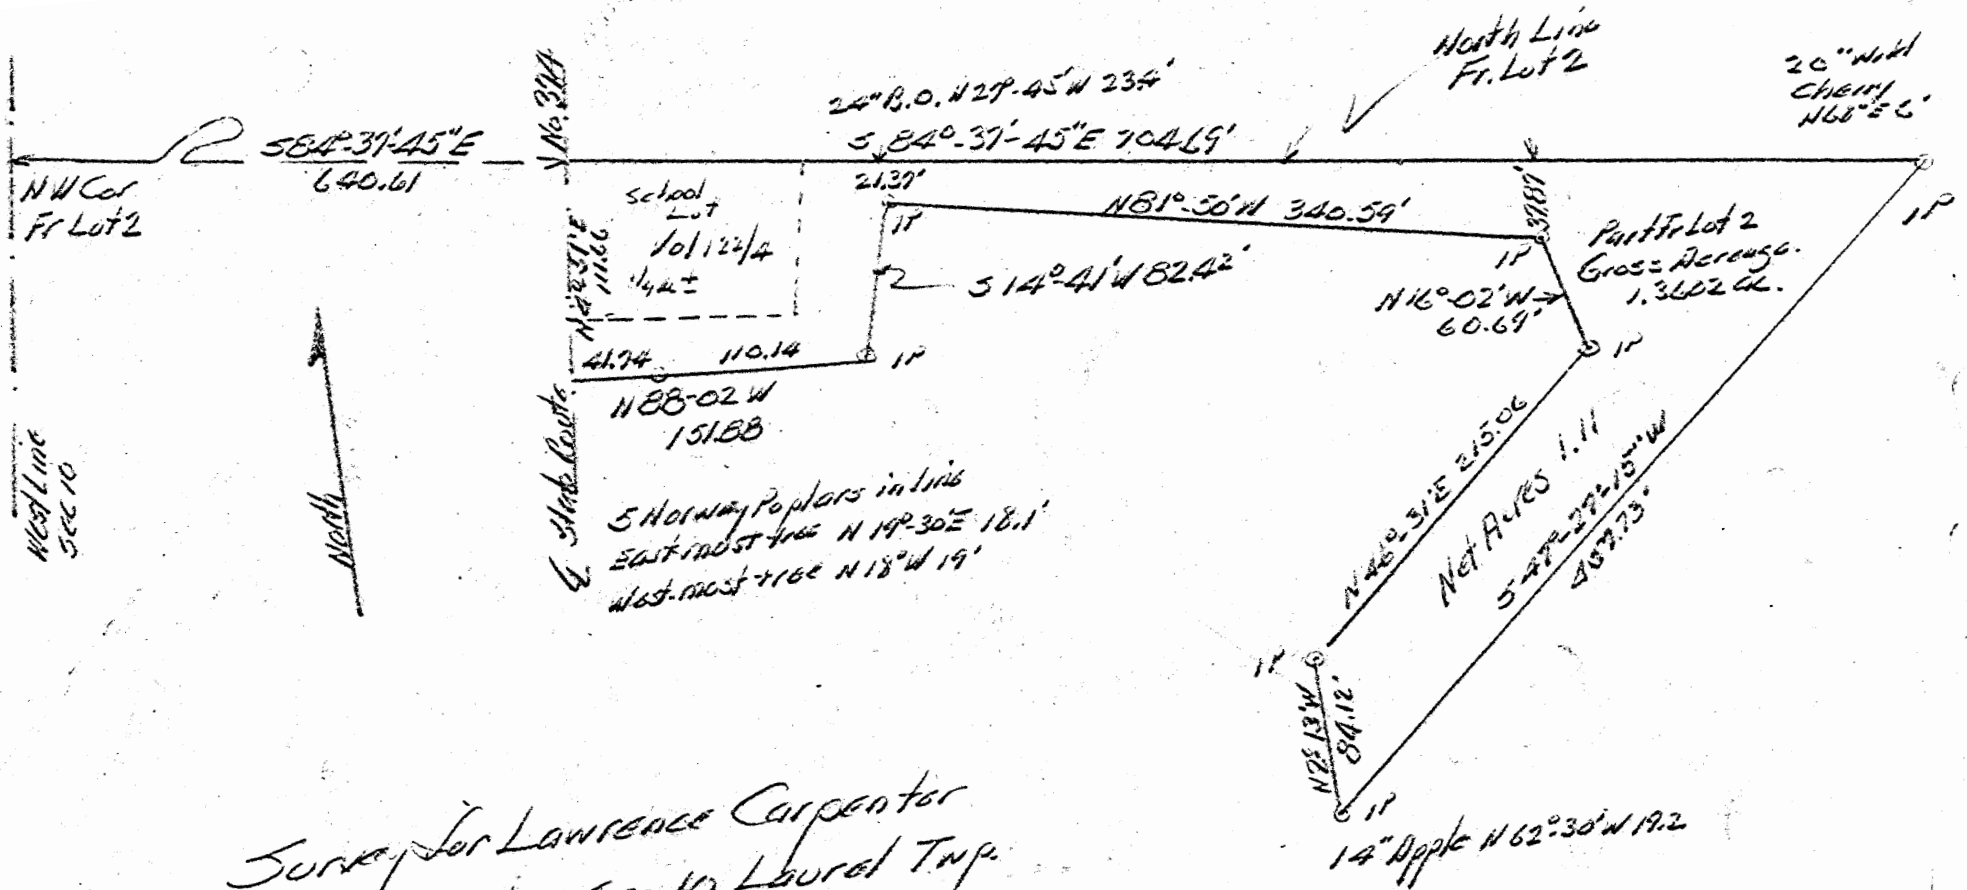 North Line
Fr. Lot 2
20" Wild
Cherry
N60°E 6'
24" B.O. N 29°-45' W 23.4'
S 84°-37'-45" E 704.69'
No. 374
S 84°-37'-45" E
640.61
NW Cor
Fr Lot 2
School
Lot
Vol 122/4
1/4 ac ±
111.66
21.39'
IP
N 81°-50' W 340.59'
37.87'
IP
IP
Part Fr Lot 2
Gross Acreage.
1.3602 ac.
S 14°-41' W 82.42'
N 16°-02' W
60.69'
IP
41.74 110.14
IP
N 88-02 W
151.88
West Line
Sec 10
North
℄ State Route
5 Norway Poplars in line
East most tree N 19°-30' E 18.1'
West-most tree N 18° W 19'
N 46°-31' E 215.06
Net Acres 1.11
S 47°-29'-15" W
457.73'
IP
84.12'
IP
14" Apple N 62°30' W 19.2
Survey for Lawrence Carpenter
Laurel Twp.